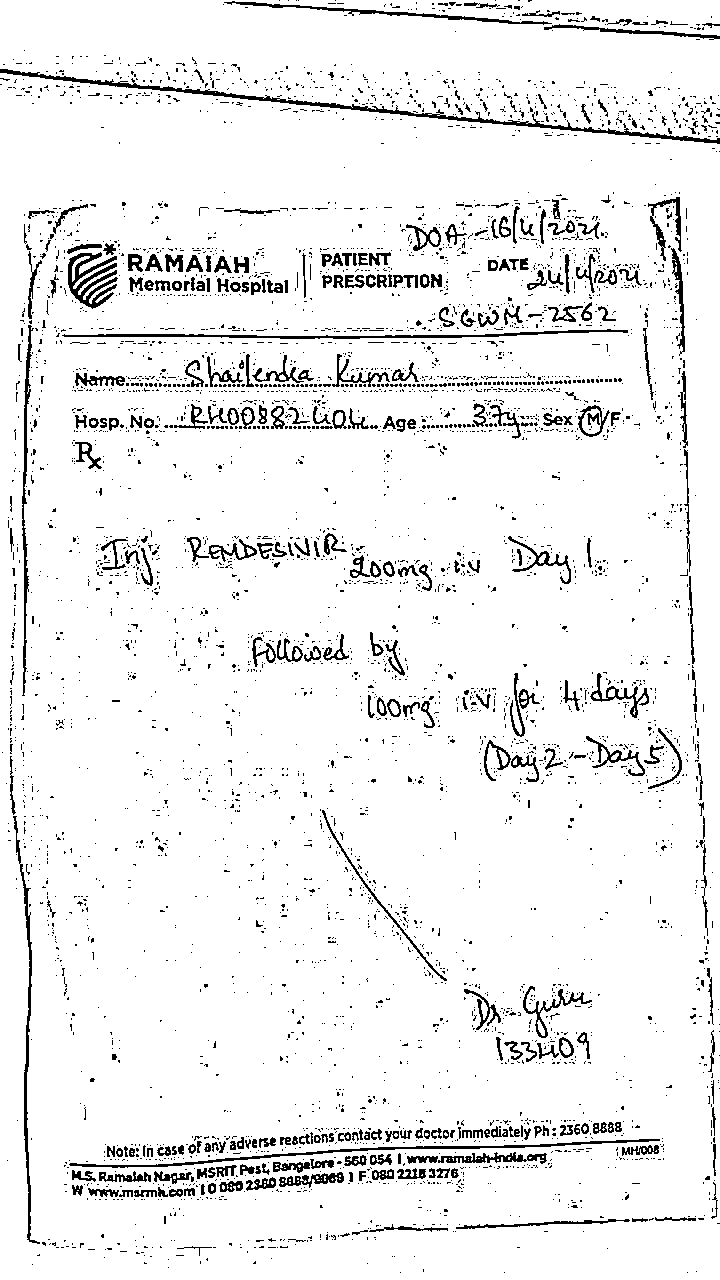 DOA - 16/4/2021
RAMAIAH
Memorial Hospital
PATIENT
PRESCRIPTION
DATE 24/4/2021
SGWM - 2562
Name Shailendra Kumar
Hosp. No. RH00882404 Age : 37y Sex M/F
Rx
Inj REMDESIVIR 200mg iv Day 1
Followed by
100mg i.v for 4 days
(Day 2 - Day 5)
Dr Guru
133409
Note: In case of any adverse reactions contact your doctor immediately Ph : 2360 8888
M.S. Ramaiah Nagar, MSRIT Post, Bangalore - 560 054 | www.ramaiah-india.org
MH/008
W www.msrmh.com | O 080 2360 8888/9069 | F 080 2218 3276